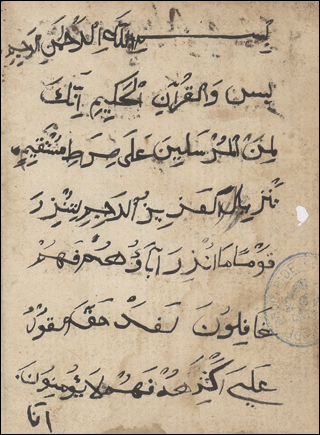 بسم الله الرحمن الرحيم
يس والقرآن الحكيم إنك
لمن المرسلين على صرط مستقيم
تنزيل العزيز الرحيم لتنذر
قوما ما أنذر آباؤهم فهم
غافلون لقد حق القول
على أكثرهم فهم لا يؤمنون
إنا